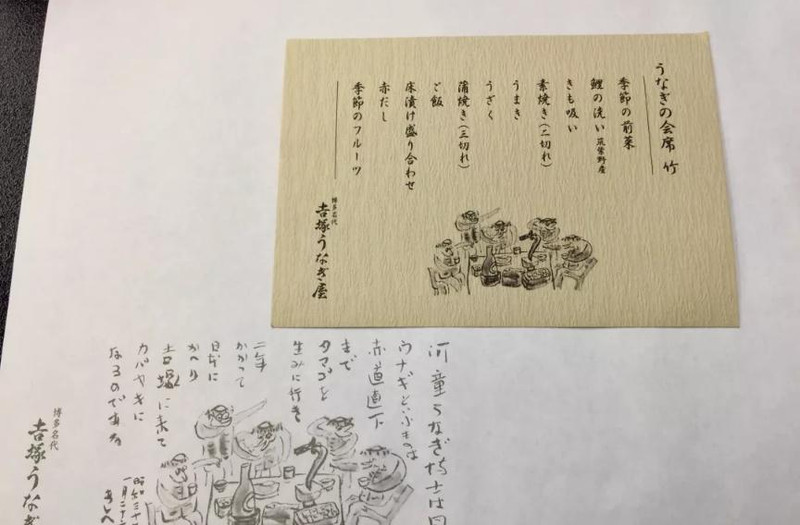 うなぎの会席 竹
季節の前菜
鯉の洗い 筑紫野産
きも吸い
素焼き(二切れ)
うまき
うざく
蒲焼き(三切れ)
ご飯
床漬け盛り合わせ
赤だし
季節のフルーツ
博多名代
吉塚うなぎ屋
河童うなぎ博士は曰
ウナギといふものは
赤道直下
まで
タマゴを
生みに行き
二年
かかって
日本に
かへり
吉塚に来て
カバヤキに
なるのである
昭和三十
博多名代
吉塚うなぎ